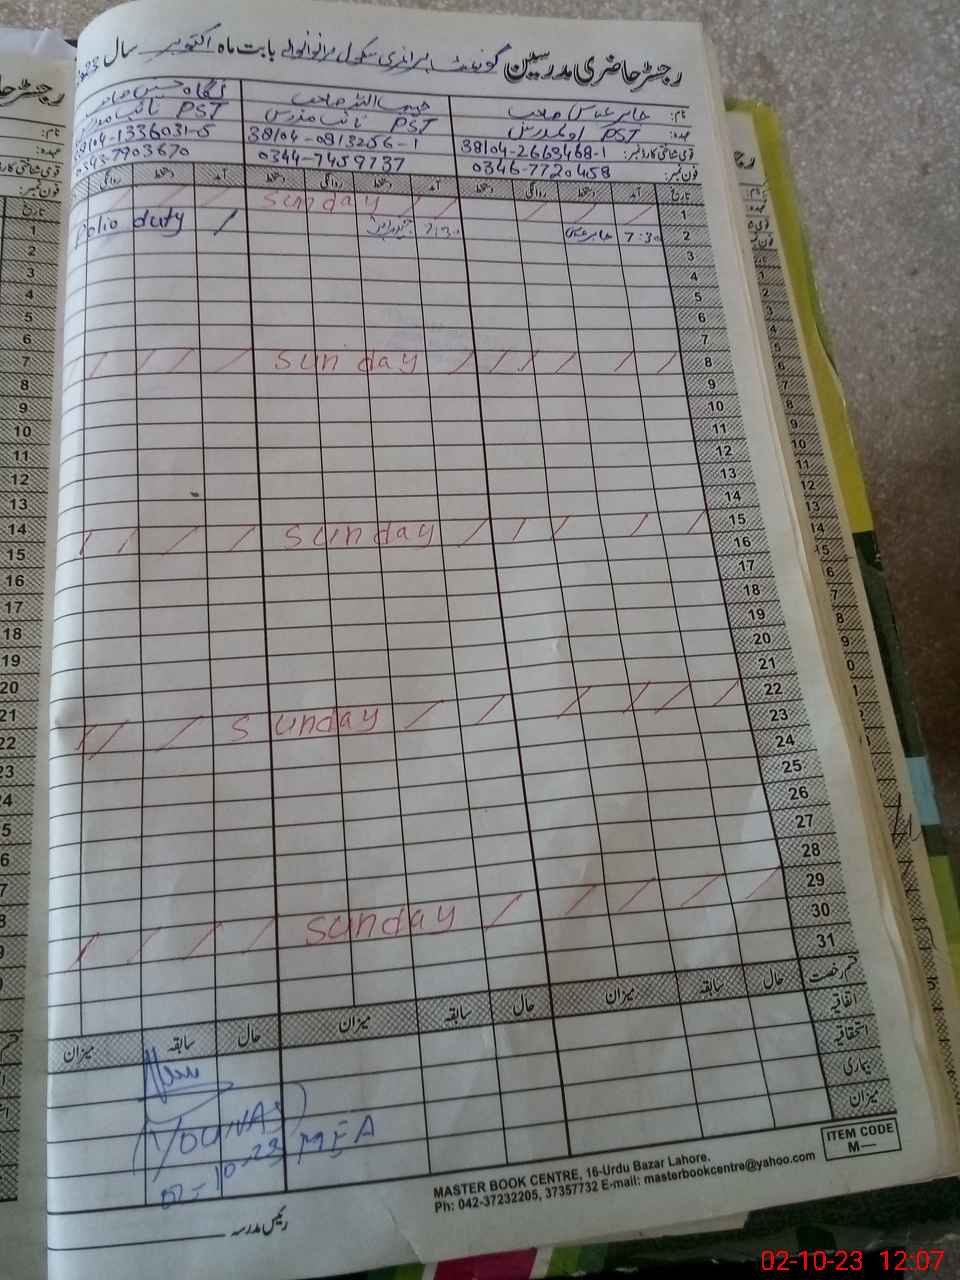 رجسٹر حاضری مدرسین گورنمنٹ پرائمری سکول بابت ماہ اکتوبر سال 2023
نام: جابر عباس صاحب
حبیب اللہ صاحب
عہدہ: PST اول مدرس
PST نائب مدرس
PST نائب مدرس
قومی شناختی کارڈ نمبر: 38104-2663468-1
38104-0813256-1
38104-1336031-5
فون نمبر: 0346-7720458
0344-7459737
0343-7903670
تاریخ آمد دستخط روانگی دستخط آمد دستخط روانگی دستخط آمد دستخط روانگی
1 Sunday
2 7:30 جابر عباس 7:30 Polio duty
3
4
5
6
7
8 Sunday
9
10
11
12
13
14
15 Sunday
16
17
18
19
20
21
22 Sunday
23
24
25
26
27
28
29 Sunday
30
31
قسم رخصت حال سابقہ میزان حال سابقہ میزان حال سابقہ میزان
اتفاقیہ
استحقاقیہ
بیماری
میزان
(YOUNAS)
02-10-23 MEA
رئیس مدرسہ
ITEM CODE
M—
MASTER BOOK CENTRE, 16-Urdu Bazar Lahore.
Ph: 042-37232205, 37357732 E-mail: masterbookcentre@yahoo.com
02-10-23 12:07